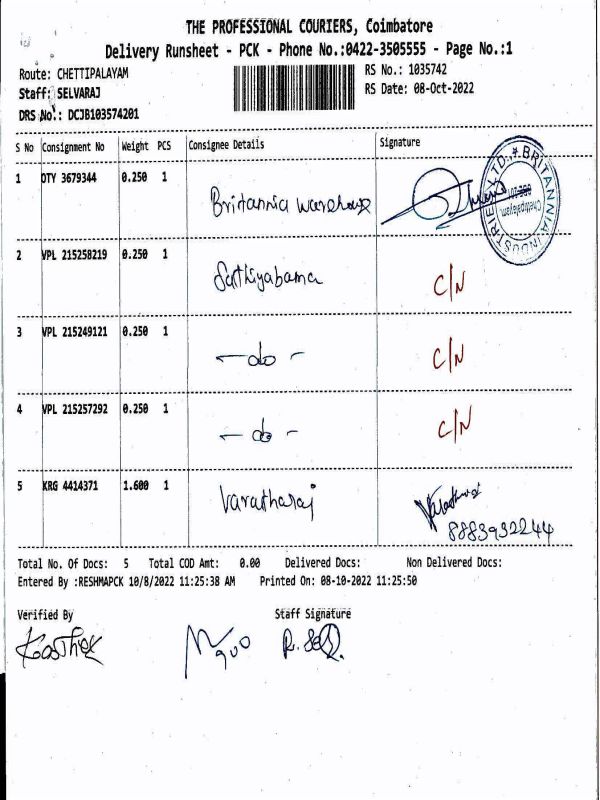 THE PROFESSIONAL COURIERS, Coimbatore
Delivery Runsheet - PCK - Phone No.:0422-3505555 - Page No.:1
Route: CHETTIPALAYAM
RS No.: 1035742
Staff: SELVARAJ
RS Date: 08-Oct-2022
DRS No.: DCJB103574201
S No Consignment No Weight PCS Consignee Details Signature
1 OTY 3679344 0.250 1 Britannia warehouse
BRITANNIA INDUSTRIES LTD. Chettipalayam
2 VPL 215258219 0.250 1 Sathiyabama C/N
3 VPL 215249121 0.250 1 - do - C/N
4 VPL 215257292 0.250 1 - do - C/N
5 KRG 4414371 1.600 1 Varatharaj
8883932244
Total No. Of Docs: 5 Total COD Amt: 0.00 Delivered Docs: Non Delivered Docs:
Entered By :RESHMAPCK 10/8/2022 11:25:38 AM Printed On: 08-10-2022 11:25:50
Verified By Staff Signature